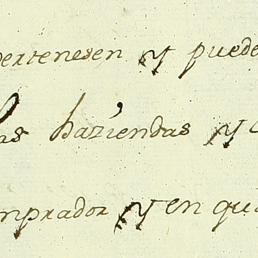 pertenesen y puede
las haziendas y
mprador y en qu